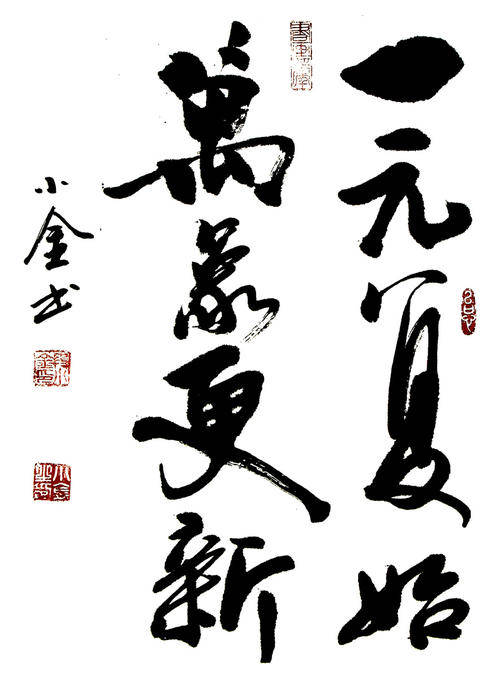 一元復始
萬象更新
小金书